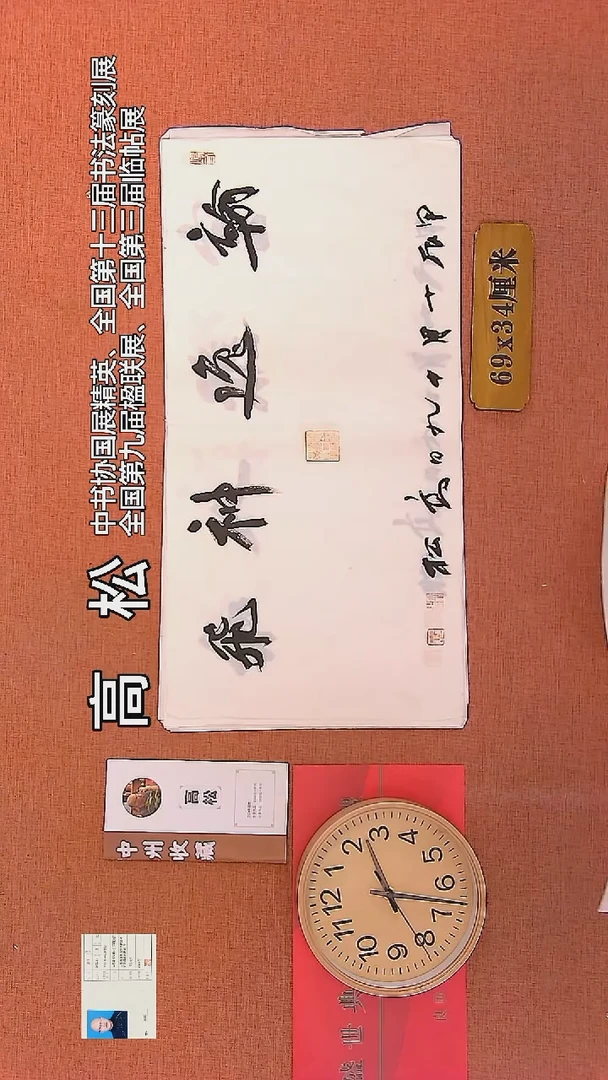 高 松
中书协国展精英、全国第十三届书法篆刻展
全国第九届楹联展、全国第三届临帖展
翰逸神飛
甲辰十月
九日高松
69x34厘米
高松
中州收藏
盛世典
12 1 2 3 4 5 6 7 8 9 10 11